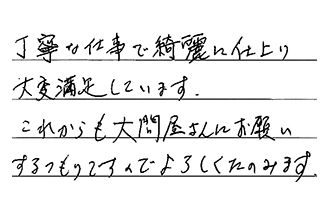 丁寧な仕事で綺麗に仕上り
大変満足しています.
これからも大問屋さんにお願い
するつもりですのでよろしくたのみます.